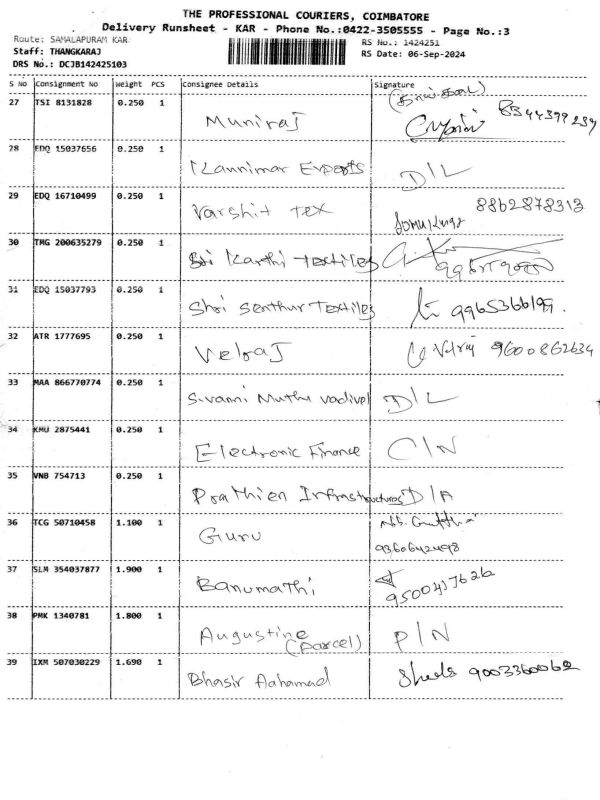 THE PROFESSIONAL COURIERS, COIMBATORE
Delivery Runsheet - KAR - Phone No.:0422-3505555 - Page No.:3
Route: SAMALAPURAM KAR
RS No.: 1424251
Staff: THANGKARAJ
RS Date: 06-Sep-2024
DRS No.: DCJB142425103
S No Consignment No Weight PCS Consignee Details Signature
27 TSI 8131828 0.250 1 Muniraj 8344399234
28 EDQ 15037656 0.250 1 Kannimar Exports D/L
29 EDQ 16710499 0.250 1 Varshit Tex 8862878313
30 TMG 200635279 0.250 1 Sri Karthi Textiles
31 EDQ 15037793 0.250 1 Shri Senthur Textiles 9965366199
32 ATR 1777695 0.250 1 Velraj Velraj 9600862634
33 MAA 866770774 0.250 1 Sivanni Muthu Vadivel D/L
34 KMU 2875441 0.250 1 Electronic Finance C/N
35 VNB 754713 0.250 1 Prathien Infrastructures D/A
36 TCG 50710458 1.100 1 Guru
9360642498
37 SLM 354037877 1.900 1 Banumathi 9500417626
38 PMK 1340781 1.800 1 Augustine P/N
(Parcel)
39 IXM 507030229 1.690 1 Bhasir Aahamad 9003360062